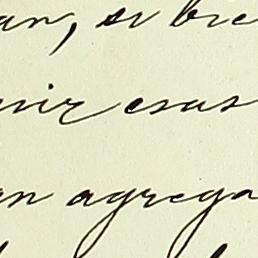 an, si bre
nir esas
an agrega